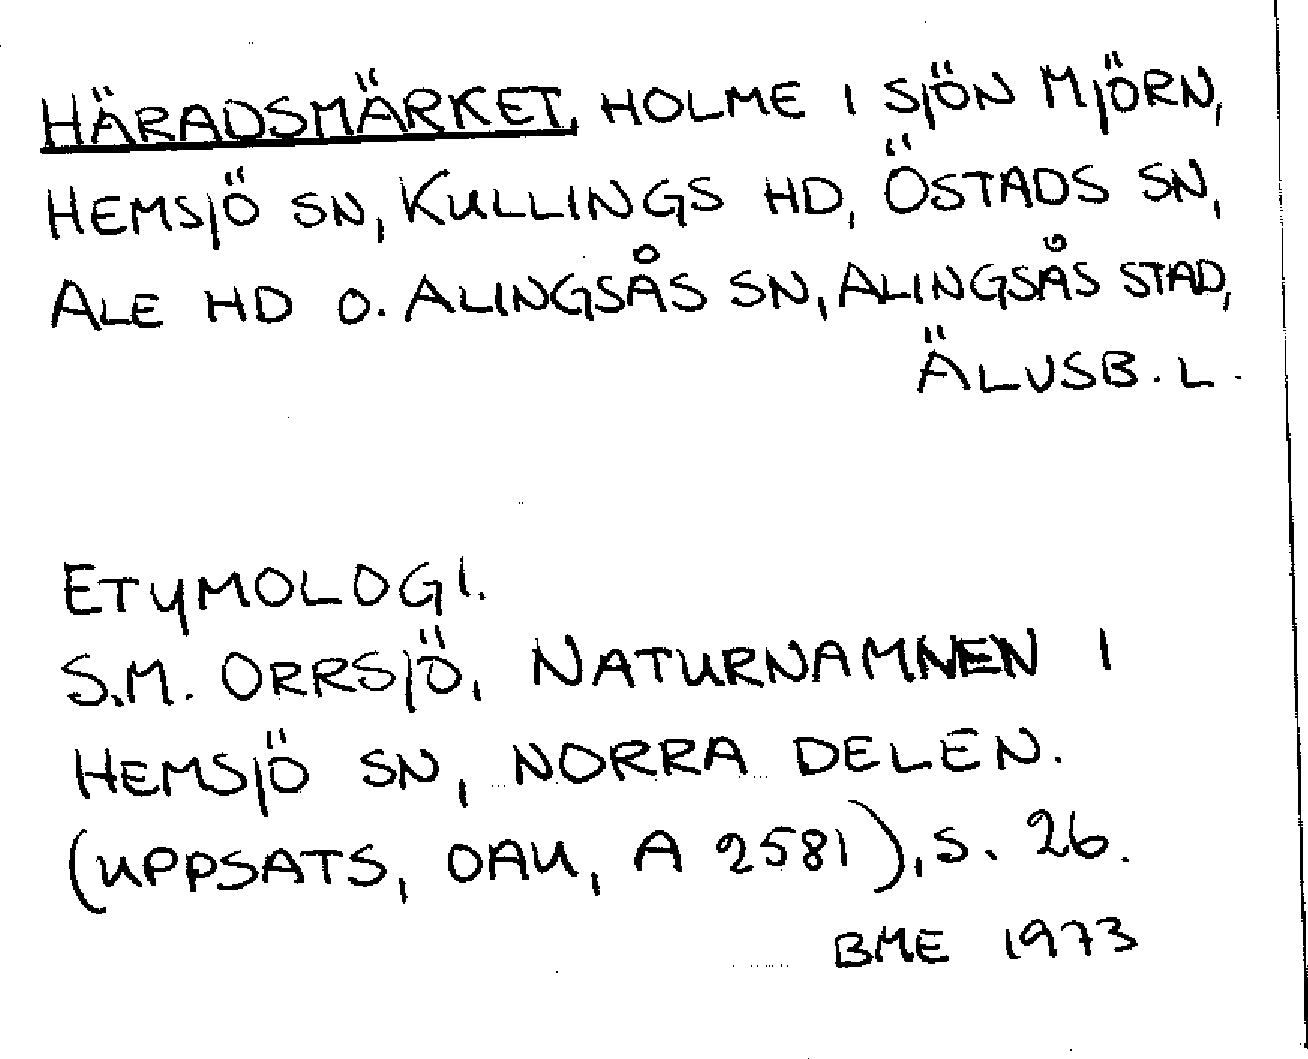 HÄRADSMÄRKET, HOLME I SJÖN MJÖRN,
HEMSJÖ SN, KULLINGS HD, ÖSTADS SN,
ALE HD O. ALINGSÅS SN, ALINGSÅS STAD,
ÄLVSB. L.
ETYMOLOGI.
S.M. ORRSJÖ, NATURNAMNEN I
HEMSJÖ SN, NORRA DELEN.
(UPPSATS, OAU, A 2581), S. 26.
BME 1973